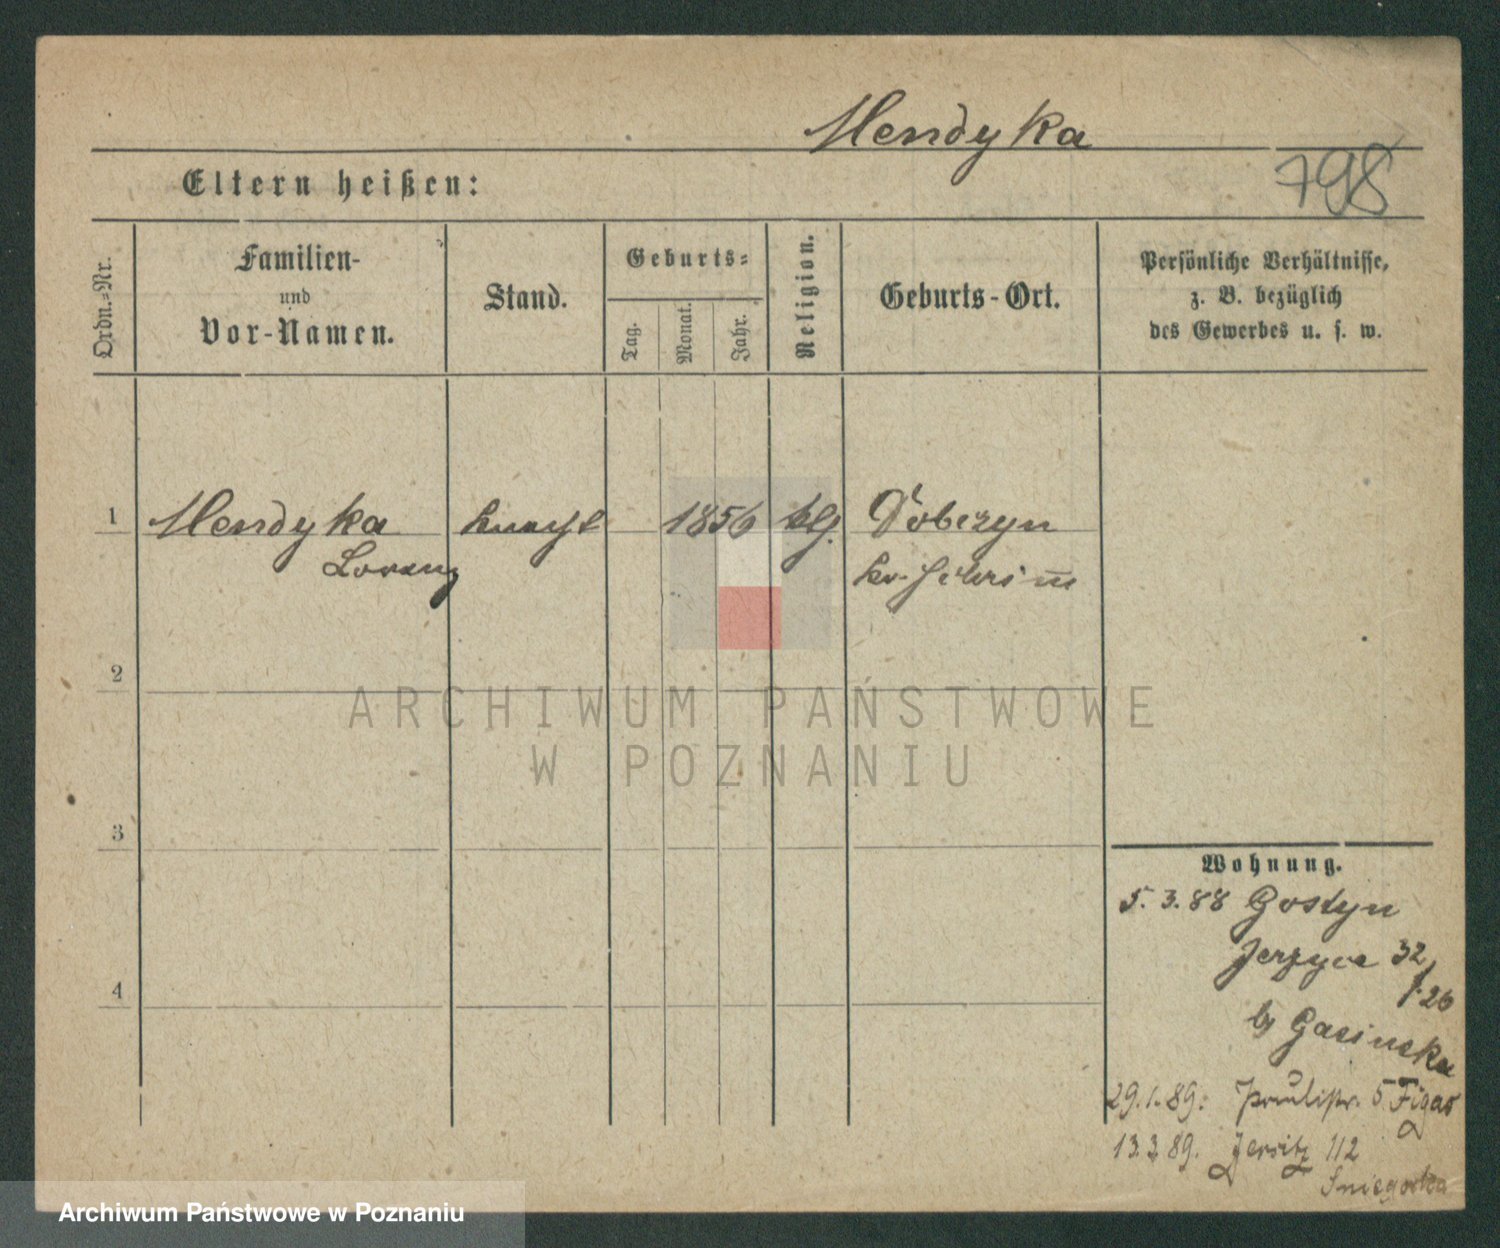 Mendyka
798
Eltern heißen:
Ordn.-Nr.
Familien-
und
Vor-Namen.
Stand.
Geburts-
Tag.
Monat.
Jahr.
Religion.
Geburts-Ort.
Persönliche Verhältnisse,
z. B. bezüglich
des Gewerbes u. s. w.
1 Mendyka Knecht 1856 klg. Dobczyn
Lorenz Kr. Schrim̅
2
ARCHIWUM PAŃSTWOWE
W POZNANIU
3
Wohnung.
5. 3. 88 Gostyn
4
Jerzyce 32
f. 26
b/ Gasinska
29. 1. 89: Paulistr. 5 Figas
13. 3. 89. Jersitz 112
Sniegocka
Archiwum Państwowe w Poznaniu